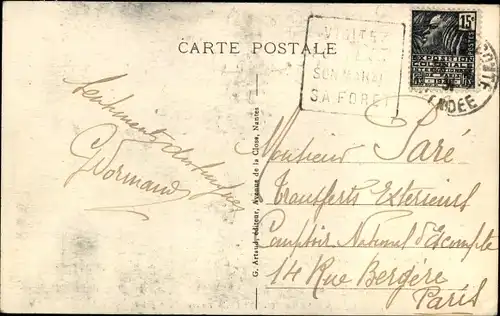 CARTE POSTALE
VISITEZ
SON MARAIS
SA FORET
15c
POSTES
EXPOSITION
COLONIALE
INTERNATIONALE
PARIS
1931
VENDEE
G. Artaud, éditeur, Avenue de la Close, Nantes
Sentiments distingués
G Normand
Monsieur Paré
Transferts Extérieurs
Comptoir National d'Escompte
14 Rue Bergère
Paris